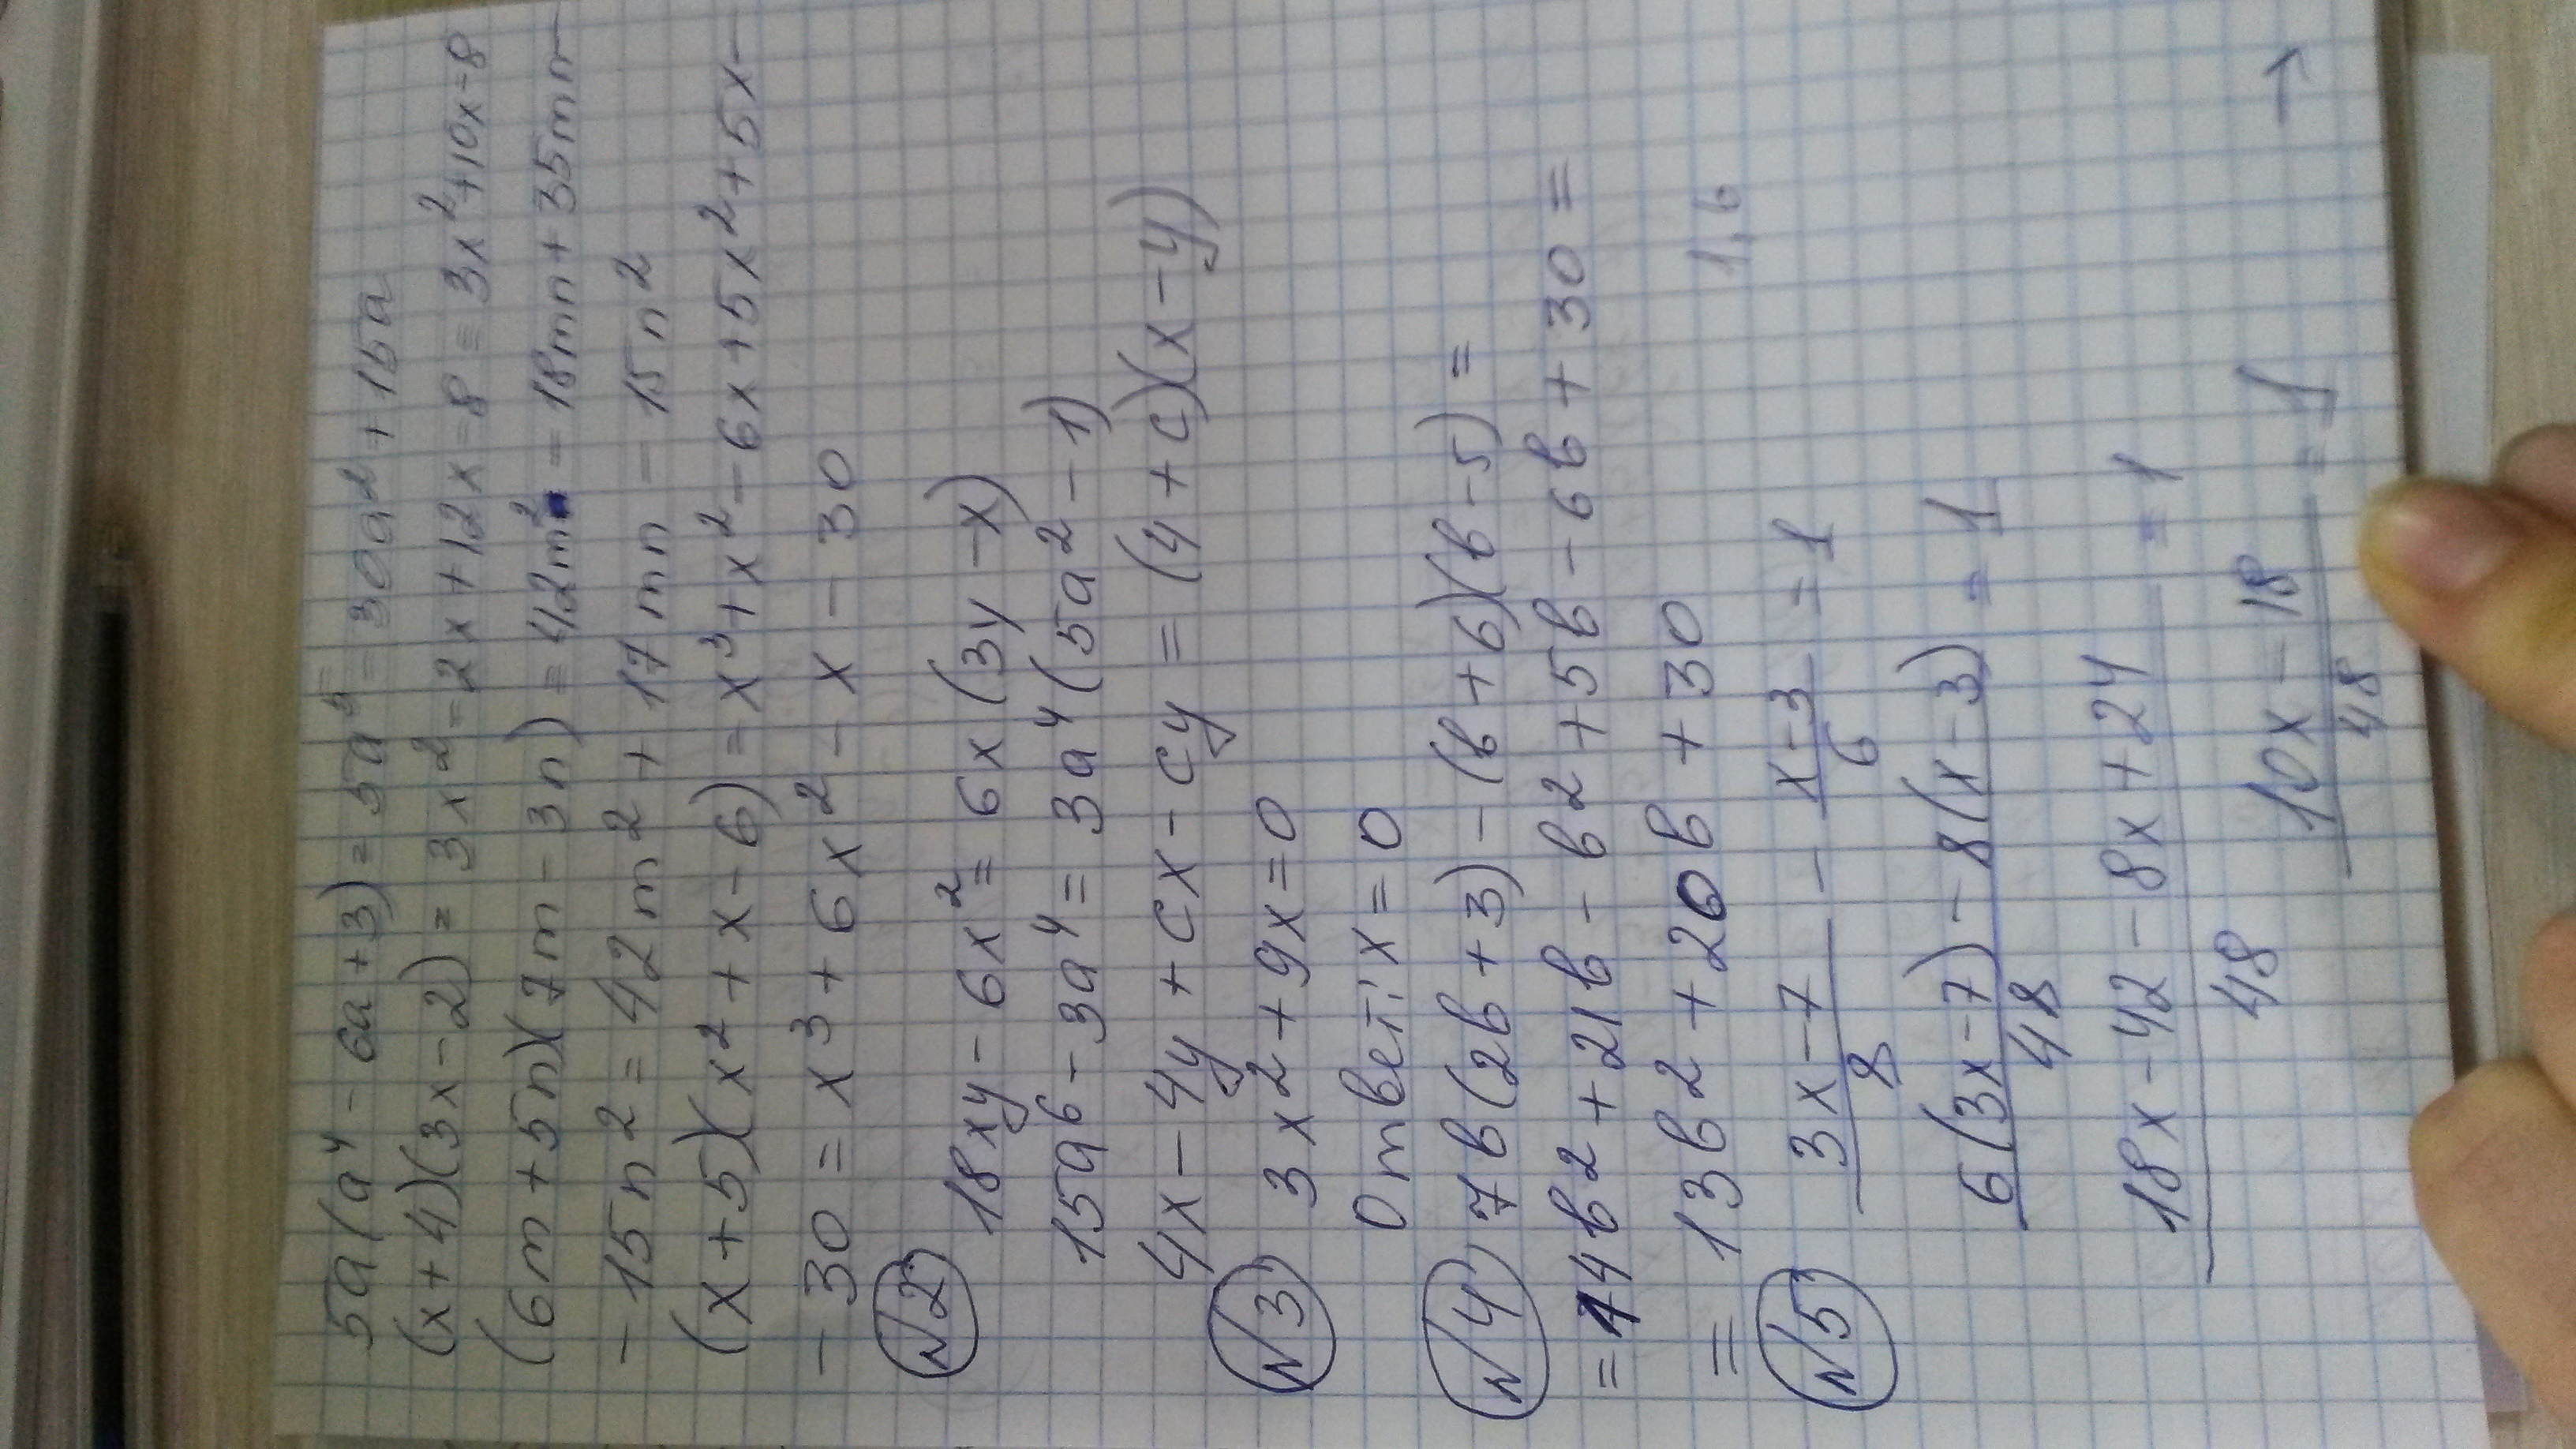 5a(a⁴ - 6a + 3) = 5a⁵ - 30a² + 15a
(x + 4)(3x - 2) = 3x² - 2x + 12x - 8 = 3x² + 10x - 8
(6m + 5n)(7m - 3n) = 42m² - 18mn + 35mn -
- 15n² = 42m² + 17mn - 15n²
(x + 5)(x² + x - 6) = x³ + x² - 6x + 5x² + 5x -
- 30 = x³ + 6x² - x - 30
N2) 18xy - 6x² = 6x(3y - x)
15a⁶ - 3a⁴ = 3a⁴(5a² - 1)
4x - 4y + cx - cy = (4 + c)(x - y)
N3) 3x² + 9x = 0
Ответ: x = 0
N4) 7в(2в + 3) - (в + 6)(в - 5) =
= 14в² + 21в - в² + 5в - 6в + 30 =
= 13в² + 20в + 30 1,6
N5) (3x - 7)/8 - (x - 3)/6 = 1
(6(3x - 7) - 8(x - 3))/48 = 1
(18x - 42 - 8x + 24)/48 = 1
(10x - 18)/48 = 1 →